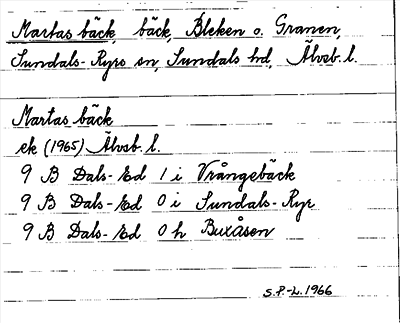 Martas bäck, bäck, Bleken o. Granen,
Sundals-Ryrs sn, Sundals hd, Älvsb. l.
Martas bäck
ek (1965) Älvsb. l.
9 B Dals-Ed 1 i Vrångebäck
9 B Dals-Ed 0 i Sundals-Ryr
9 B Dals-Ed 0 h Buxåsen
S.P.-L. 1966